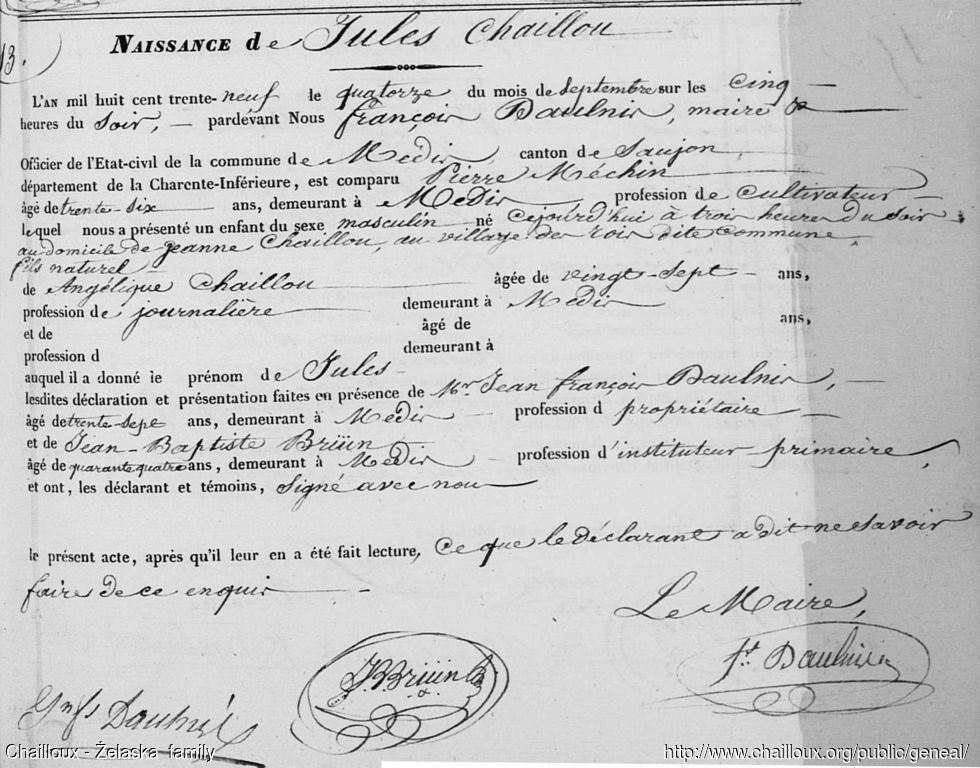 13.
NAISSANCE de Jules Chaillou
L'AN mil huit cent trente-neuf le quatorze du mois de Septembre sur les Cinq
heures du Soir, pardevant Nous françois Daulnis, maire &
Officier de l'Etat-civil de la commune de Médis, canton de Saujon,
département de la Charente-Inférieure, est comparu Pierre Méchin
âgé de trente-six ans, demeurant à Médis profession de Cultivateur
lequel nous a présenté un enfant du sexe masculin né Cejourd'hui à trois heures du Soir
au domicile de jeanne Chaillou, au village de rois dite Commune,
fils naturel
de Angélique Chaillou âgée de vingt-sept ans,
profession de journalière demeurant à Médis
et de âgé de ans,
profession d demeurant à
auquel il a donné le prénom de Jules
lesdites déclaration et présentation faites en présence de Mr Jean françois Daulnis,
âgé de trente-sept ans, demeurant à Médis profession d propriétaire
et de Jean-Baptiste Brüin
âgé de quarante quatre ans, demeurant à Médis profession d'instituteur primaire,
et ont, les déclarant et témoins, Signé avec nous
le présent acte, après qu'il leur en a été fait lecture, Ce que le déclarant a dit ne Savoir
faire de ce enquis
Le Maire,
ft Daulnis
JBBrüin
Daulnis
Chailloux - Żelaska family http://www.chailloux.org/public/geneal/